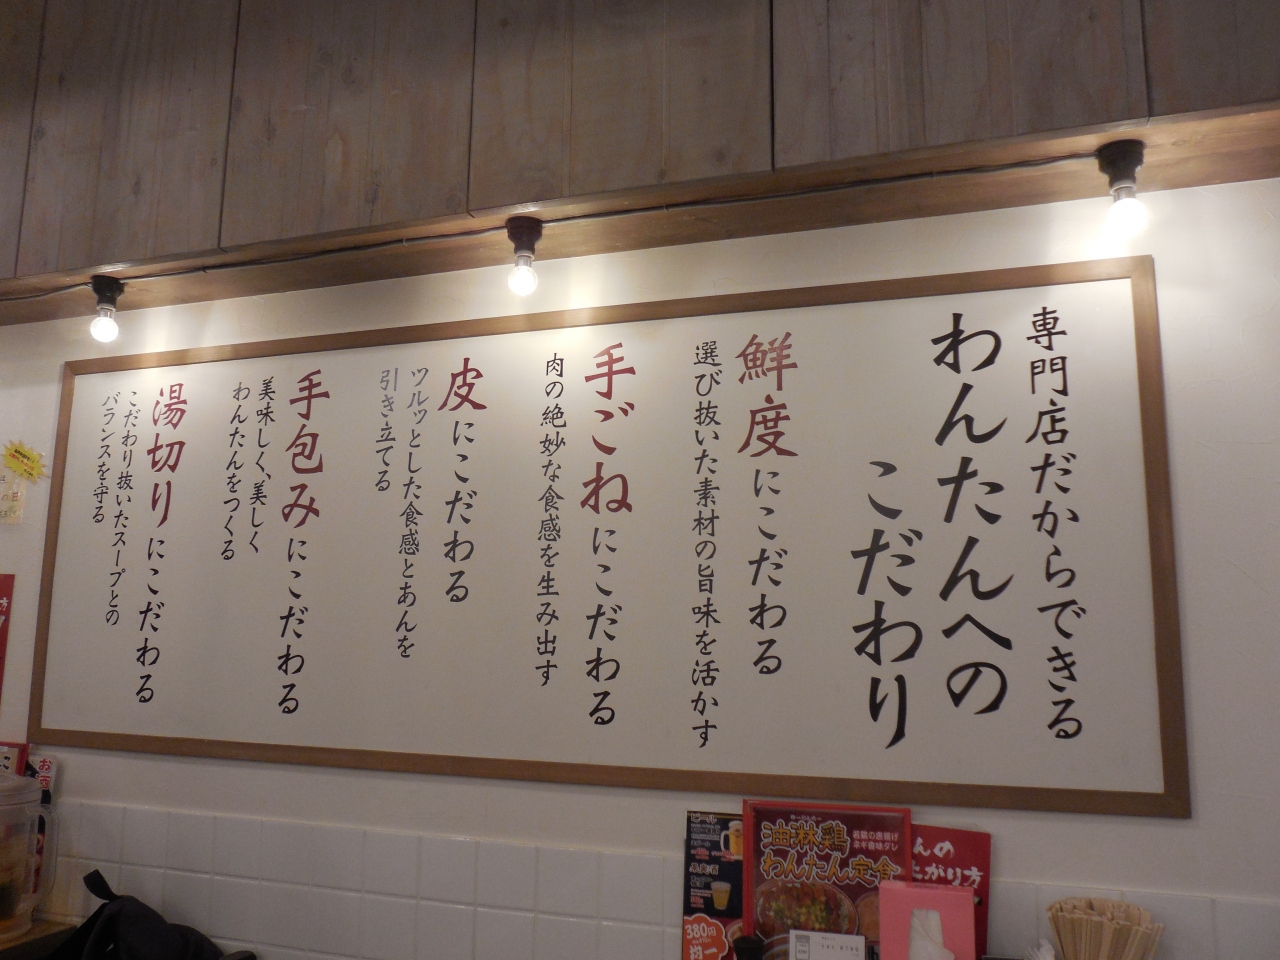 専門店だからできる
わんたんへの
こだわり
鮮度にこだわる
選び抜いた素材の旨味を活かす
手ごねにこだわる
肉の絶妙な食感を生み出す
皮にこだわる
ツルッとした食感とあんを
引き立てる
手包みにこだわる
美味しく、美しく
わんたんをつくる
湯切りにこだわる
こだわり抜いたスープとの
バランスを守る
ビール
果実酒
380円
均一
油淋鶏
わんたん定食
若鶏の唐揚げ
ネギ香味ダレ
んの
がり方